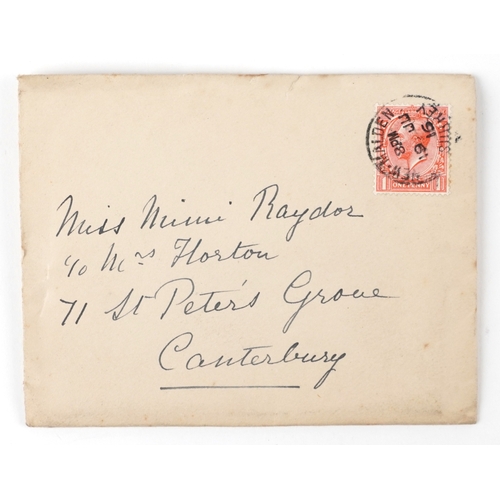 Miss Mimi Raydor
c/o Mrs Horton
71 St Peter's Grove
Canterbury
NEW MALDEN
SURREY
ONE PENNY